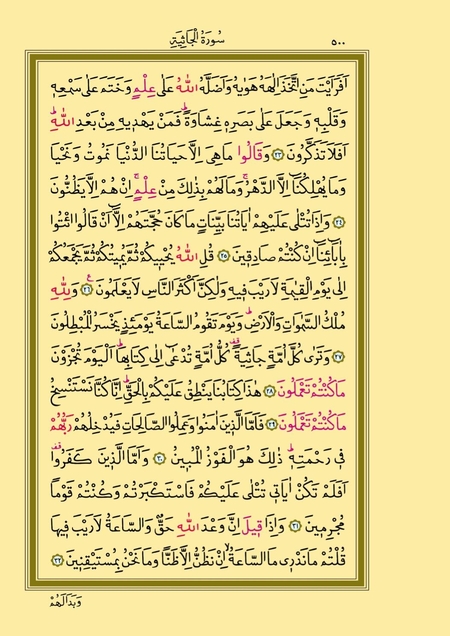 سُورَةُ الْجَاثِيَةِ ٥٠٠
اَفَرَاَيْتَ مَنِ اتَّخَذَ اِلٰهَهُ هَوٰيهُ وَاَضَلَّهُ اللّٰهُ عَلٰى عِلْمٍ وَخَتَمَ عَلٰى سَمْعِه۪
وَقَلْبِه۪ وَجَعَلَ عَلٰى بَصَرِه۪ غِشَاوَةًۜ فَمَنْ يَهْد۪يهِ مِنْ بَعْدِ اللّٰهِۜ
اَفَلَا تَذَكَّرُونَ ﴿٢٣﴾ وَقَالُوا مَا هِيَ اِلَّا حَيَاتُنَا الدُّنْيَا نَمُوتُ وَنَحْيَا
وَمَا يُهْلِكُنَٓا اِلَّا الدَّهْرُۚ وَمَا لَهُمْ بِذٰلِكَ مِنْ عِلْمٍۚ اِنْ هُمْ اِلَّا يَظُنُّونَ
﴿٢٤﴾ وَاِذَا تُتْلٰى عَلَيْهِمْ اٰيَاتُنَا بَيِّنَاتٍ مَا كَانَ حُجَّتَهُمْ اِلَّٓا اَنْ قَالُوا ائْتُوا
بِاٰبَٓائِنَٓا اِنْ كُنْتُمْ صَادِق۪ينَ ﴿٢٥﴾ قُلِ اللّٰهُ يُحْي۪يكُمْ ثُمَّ يُم۪يتُكُمْ ثُمَّ يَجْمَعُكُمْ
اِلٰى يَوْمِ الْقِيٰمَةِ لَا رَيْبَ ف۪يهِ وَلٰكِنَّ اَكْثَرَ النَّاسِ لَا يَعْلَمُونَ۟ ﴿٢٦﴾ وَلِلّٰهِ
مُلْكُ السَّمٰوَاتِ وَالْاَرْضِۜ وَيَوْمَ تَقُومُ السَّاعَةُ يَوْمَئِذٍ يَخْسَرُ الْمُبْطِلُونَ
﴿٢٧﴾ وَتَرٰى كُلَّ اُمَّةٍ جَاثِيَةً۠ كُلُّ اُمَّةٍ تُدْعٰٓى اِلٰى كِتَابِهَاۜ اَلْيَوْمَ تُجْزَوْنَ
مَا كُنْتُمْ تَعْمَلُونَ ﴿٢٨﴾ هٰذَا كِتَابُنَا يَنْطِقُ عَلَيْكُمْ بِالْحَقِّۜ اِنَّا كُنَّا نَسْتَنْسِخُ
مَا كُنْتُمْ تَعْمَلُونَ ﴿٢٩﴾ فَاَمَّا الَّذ۪ينَ اٰمَنُوا وَعَمِلُوا الصَّالِحَاتِ فَيُدْخِلُهُمْ رَبُّهُمْ
ف۪ي رَحْمَتِه۪ۜ ذٰلِكَ هُوَ الْفَوْزُ الْمُب۪ينُ ﴿٣٠﴾ وَاَمَّا الَّذ۪ينَ كَفَرُوا۠
اَفَلَمْ تَكُنْ اٰيَات۪ي تُتْلٰى عَلَيْكُمْ فَاسْتَكْبَرْتُمْ وَكُنْتُمْ قَوْمًا
مُجْرِم۪ينَ ﴿٣١﴾ وَاِذَا ق۪يلَ اِنَّ وَعْدَ اللّٰهِ حَقٌّ وَالسَّاعَةُ لَا رَيْبَ ف۪يهَا
قُلْتُمْ مَا نَدْر۪ي مَا السَّاعَةُۙ اِنْ نَظُنُّ اِلَّا ظَنًّا وَمَا نَحْنُ بِمُسْتَيْقِن۪ينَ ﴿٣٢﴾
وَبَدَا لَهُمْ